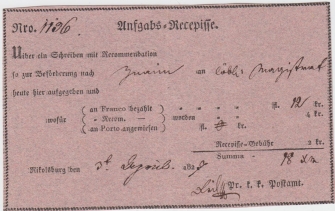 Nro. 1136. Aufgabs-Recepisse.
Ueber ein Schreiben mit Recommendation
so zur Beförderung nach Znaim an Löbl. Magistrat
heute hier aufgegeben und
an Franco bezahlt " " " " fl. 12 kr.
wofür " Recom. — wochen " " " 4 kr.
an Porto angewiesen fl. kr.
Recepisse-Gebühr 2 kr.
Summa " 18 kr.
Nikolsburg den 3t April 1857
Pr. k. k. Postamt.